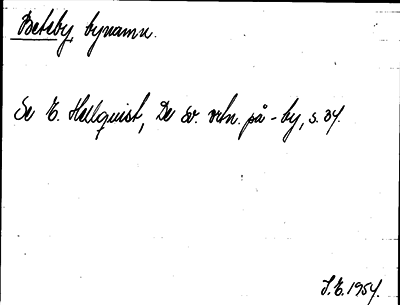 Betsby, bynamn.
Se E. Hellquist, De sv. ortn. på -by, s. 34.
S.E. 1954.